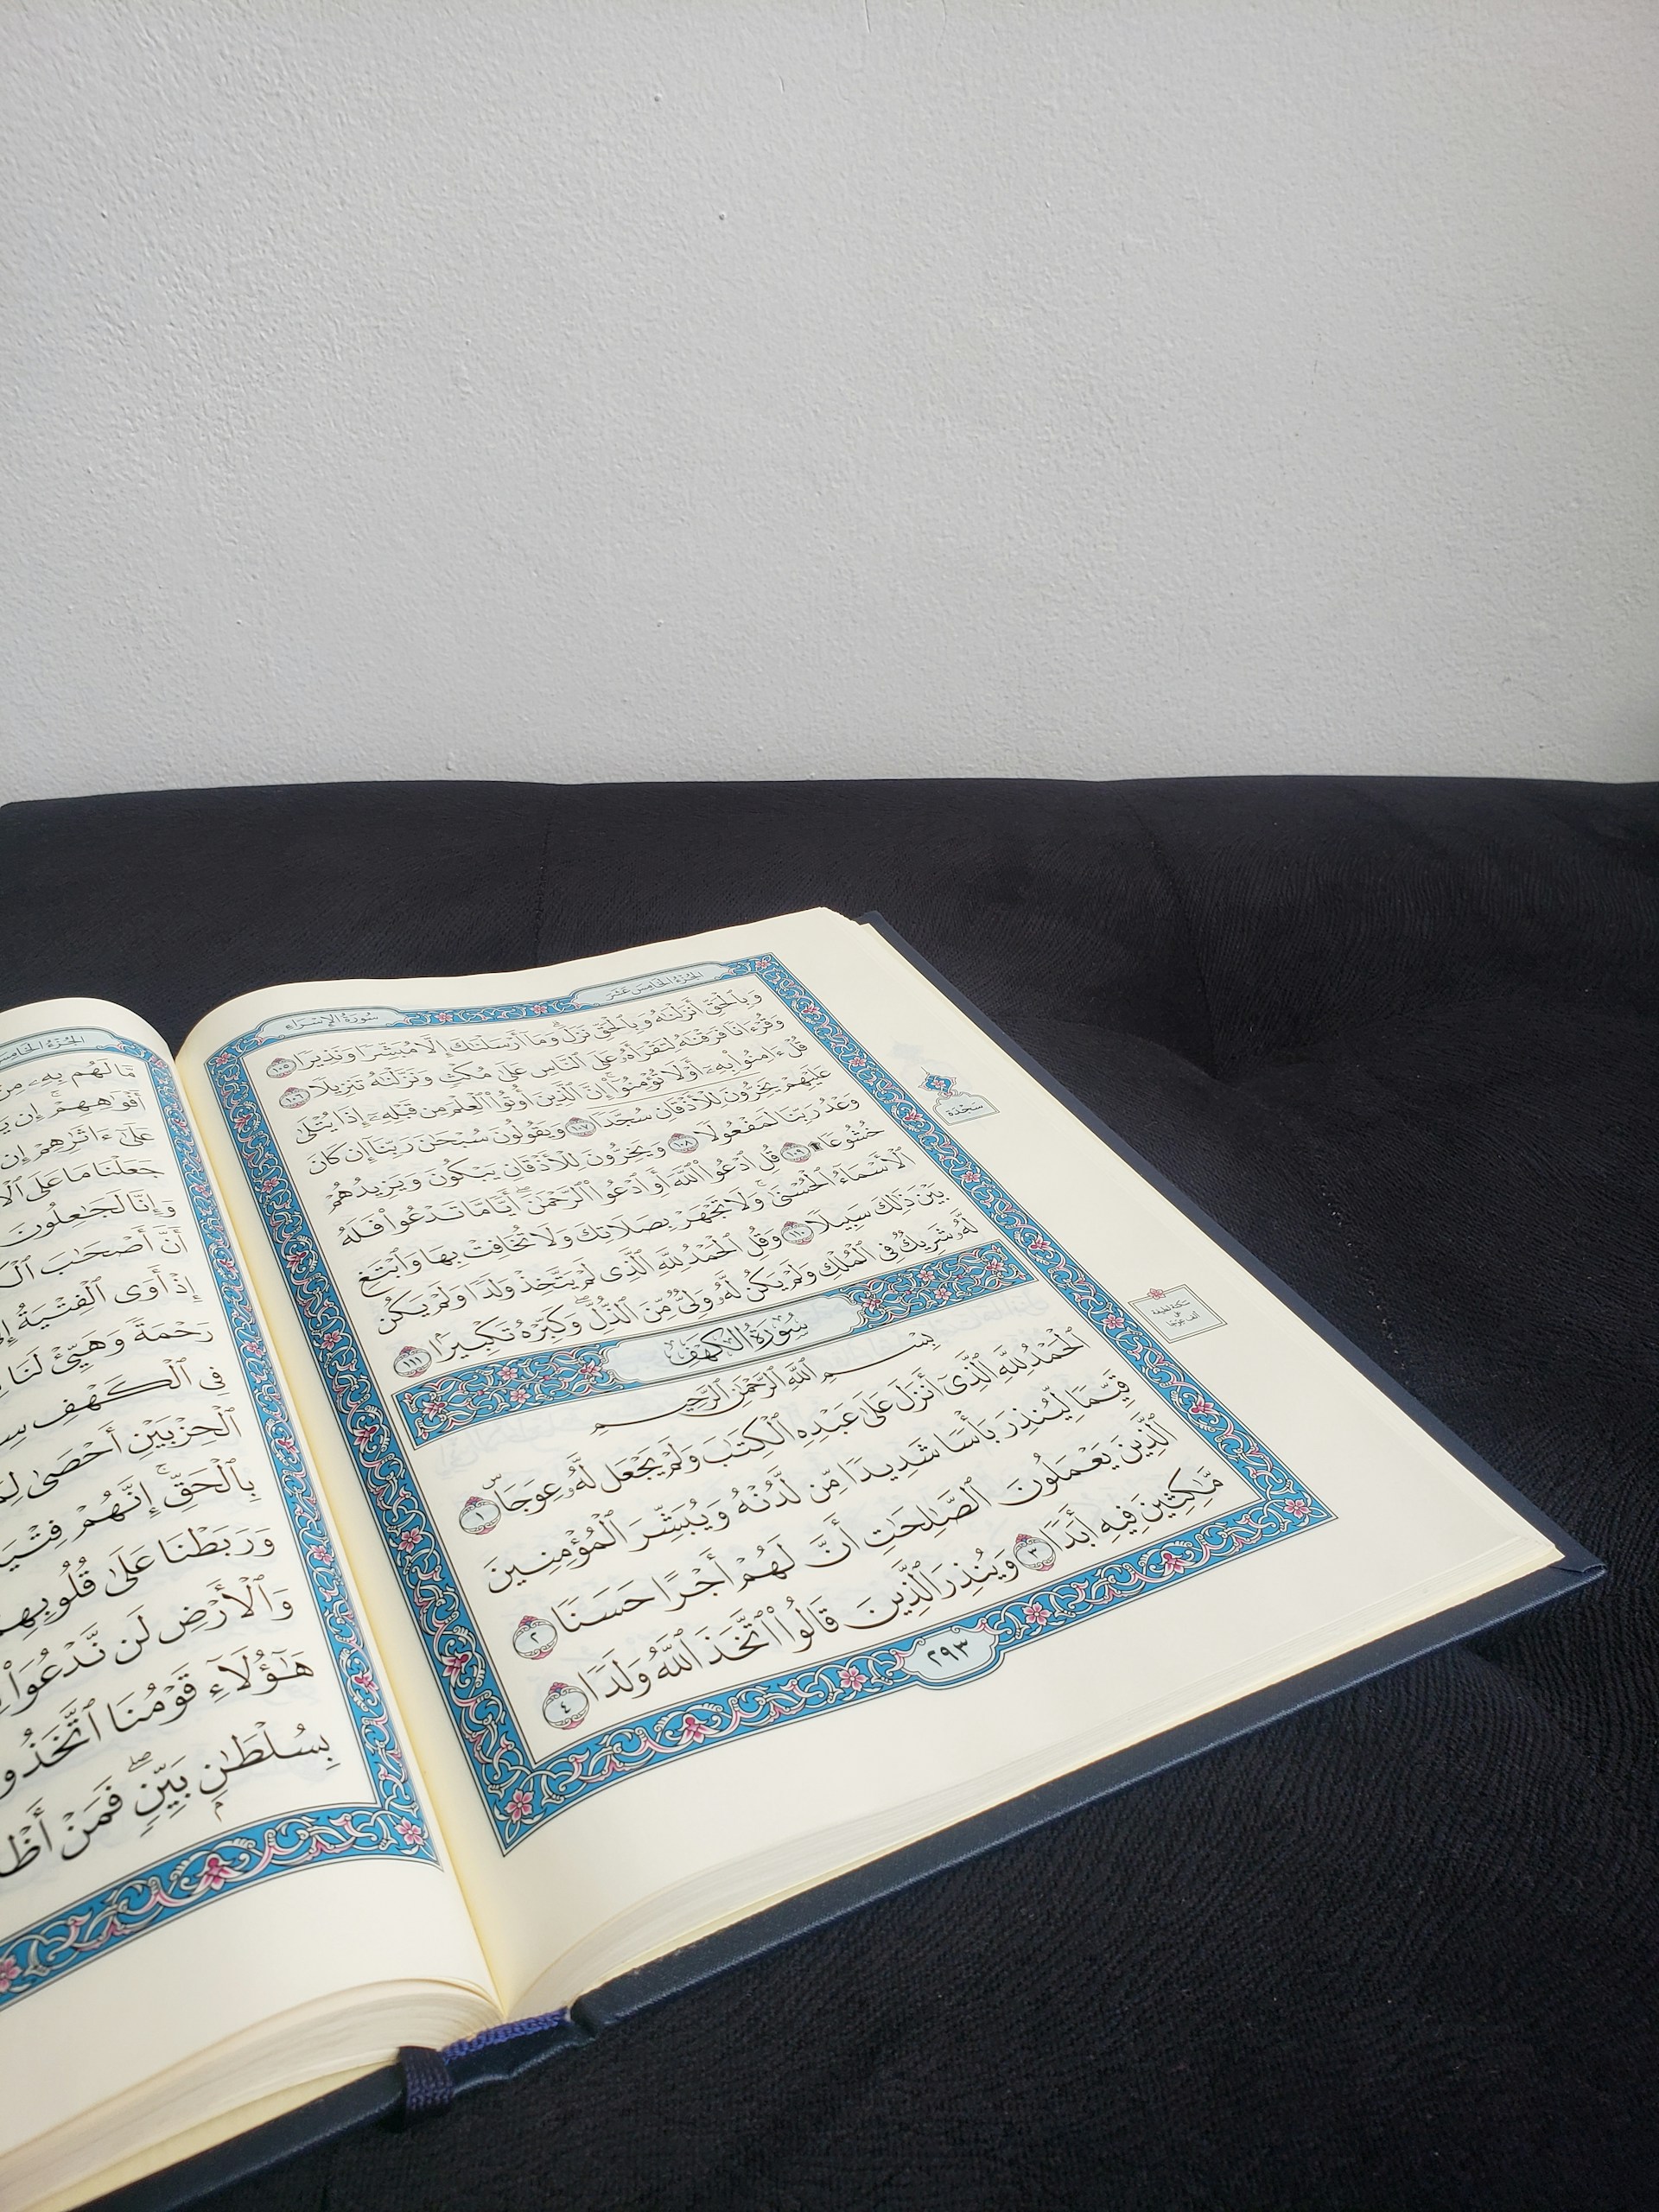 الجُزْءُ الخَامِسَ عَشَرَ
سُورَةُ الإِسْرَاءِ
وَبِٱلْحَقِّ أَنزَلْنَٰهُ وَبِٱلْحَقِّ نَزَلَ ۗ وَمَآ أَرْسَلْنَٰكَ إِلَّا مُبَشِّرًا وَنَذِيرًا ١٠٥
وَقُرْءَانًا فَرَقْنَٰهُ لِتَقْرَأَهُۥ عَلَى ٱلنَّاسِ عَلَىٰ مُكْثٍ وَنَزَّلْنَٰهُ تَنزِيلًا ١٠٦
قُلْ ءَامِنُوا۟ بِهِۦٓ أَوْ لَا تُؤْمِنُوٓا۟ ۚ إِنَّ ٱلَّذِينَ أُوتُوا۟ ٱلْعِلْمَ مِن قَبْلِهِۦٓ إِذَا يُتْلَىٰ
عَلَيْهِمْ يَخِرُّونَ لِلْأَذْقَانِ سُجَّدًا ١٠٧ وَيَقُولُونَ سُبْحَٰنَ رَبِّنَآ إِن كَانَ
وَعْدُ رَبِّنَا لَمَفْعُولًا ١٠٨ وَيَخِرُّونَ لِلْأَذْقَانِ يَبْكُونَ وَيَزِيدُهُمْ
خُشُوعًا ۩ ١٠٩ قُلِ ٱدْعُوا۟ ٱللَّهَ أَوِ ٱدْعُوا۟ ٱلرَّحْمَٰنَ ۖ أَيًّا مَّا تَدْعُوا۟ فَلَهُ
ٱلْأَسْمَآءُ ٱلْحُسْنَىٰ ۚ وَلَا تَجْهَرْ بِصَلَاتِكَ وَلَا تُخَافِتْ بِهَا وَٱبْتَغِ
بَيْنَ ذَٰلِكَ سَبِيلًا ١١٠ وَقُلِ ٱلْحَمْدُ لِلَّهِ ٱلَّذِى لَمْ يَتَّخِذْ وَلَدًا وَلَمْ يَكُن
لَّهُۥ شَرِيكٌ فِى ٱلْمُلْكِ وَلَمْ يَكُن لَّهُۥ وَلِىٌّ مِّنَ ٱلذُّلِّ ۖ وَكَبِّرْهُ تَكْبِيرًۢا ١١١
سُورَةُ الكَهْفِ
بِسْمِ ٱللَّهِ ٱلرَّحْمَٰنِ ٱلرَّحِيمِ
ٱلْحَمْدُ لِلَّهِ ٱلَّذِىٓ أَنزَلَ عَلَىٰ عَبْدِهِ ٱلْكِتَٰبَ وَلَمْ يَجْعَل لَّهُۥ عِوَجَا ۜ ١
قَيِّمًا لِّيُنذِرَ بَأْسًا شَدِيدًا مِّن لَّدُنْهُ وَيُبَشِّرَ ٱلْمُؤْمِنِينَ
ٱلَّذِينَ يَعْمَلُونَ ٱلصَّٰلِحَٰتِ أَنَّ لَهُمْ أَجْرًا حَسَنًا ٢
مَّٰكِثِينَ فِيهِ أَبَدًا ٣ وَيُنذِرَ ٱلَّذِينَ قَالُوا۟ ٱتَّخَذَ ٱللَّهُ وَلَدًا ٤
٢٩٣
سَجْدَة
سكتة لطيفة
على
ألف عوجا
الجُزْءُ الخَامِسَ
مَّا لَهُم بِهِۦ مِنْ
أَفْوَٰهِهِمْ ۚ إِن
عَلَىٰٓ ءَاثَٰرِهِمْ إِن
جَعَلْنَا مَا عَلَى
وَإِنَّا لَجَٰعِلُونَ
أَنَّ أَصْحَٰبَ
إِذْ أَوَى ٱلْفِتْيَةُ
رَحْمَةً وَهَيِّئْ لَنَا
فِى ٱلْكَهْفِ
ٱلْحِزْبَيْنِ أَحْصَىٰ
بِٱلْحَقِّ ۚ إِنَّهُمْ
وَرَبَطْنَا عَلَىٰ قُلُوبِهِمْ
وَٱلْأَرْضِ لَن نَّدْعُوَا۟
هَٰٓؤُلَآءِ قَوْمُنَا ٱتَّخَذُو
بِسُلْطَٰنٍۭ بَيِّنٍ ۖ فَمَنْ